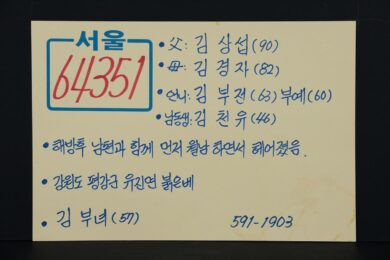 서울
64351
• 父: 김 상섭 (90)
• 母: 김 경자 (82)
• 언니: 김 부전 (63) 부예 (60)
• 남동생: 김 천유 (46)
• 해방후 남편과 함께 먼저 월남 하면서 헤어졌음.
• 강원도 평강군 유진면 붉은베
• 김 부녀 (57) 591-1903